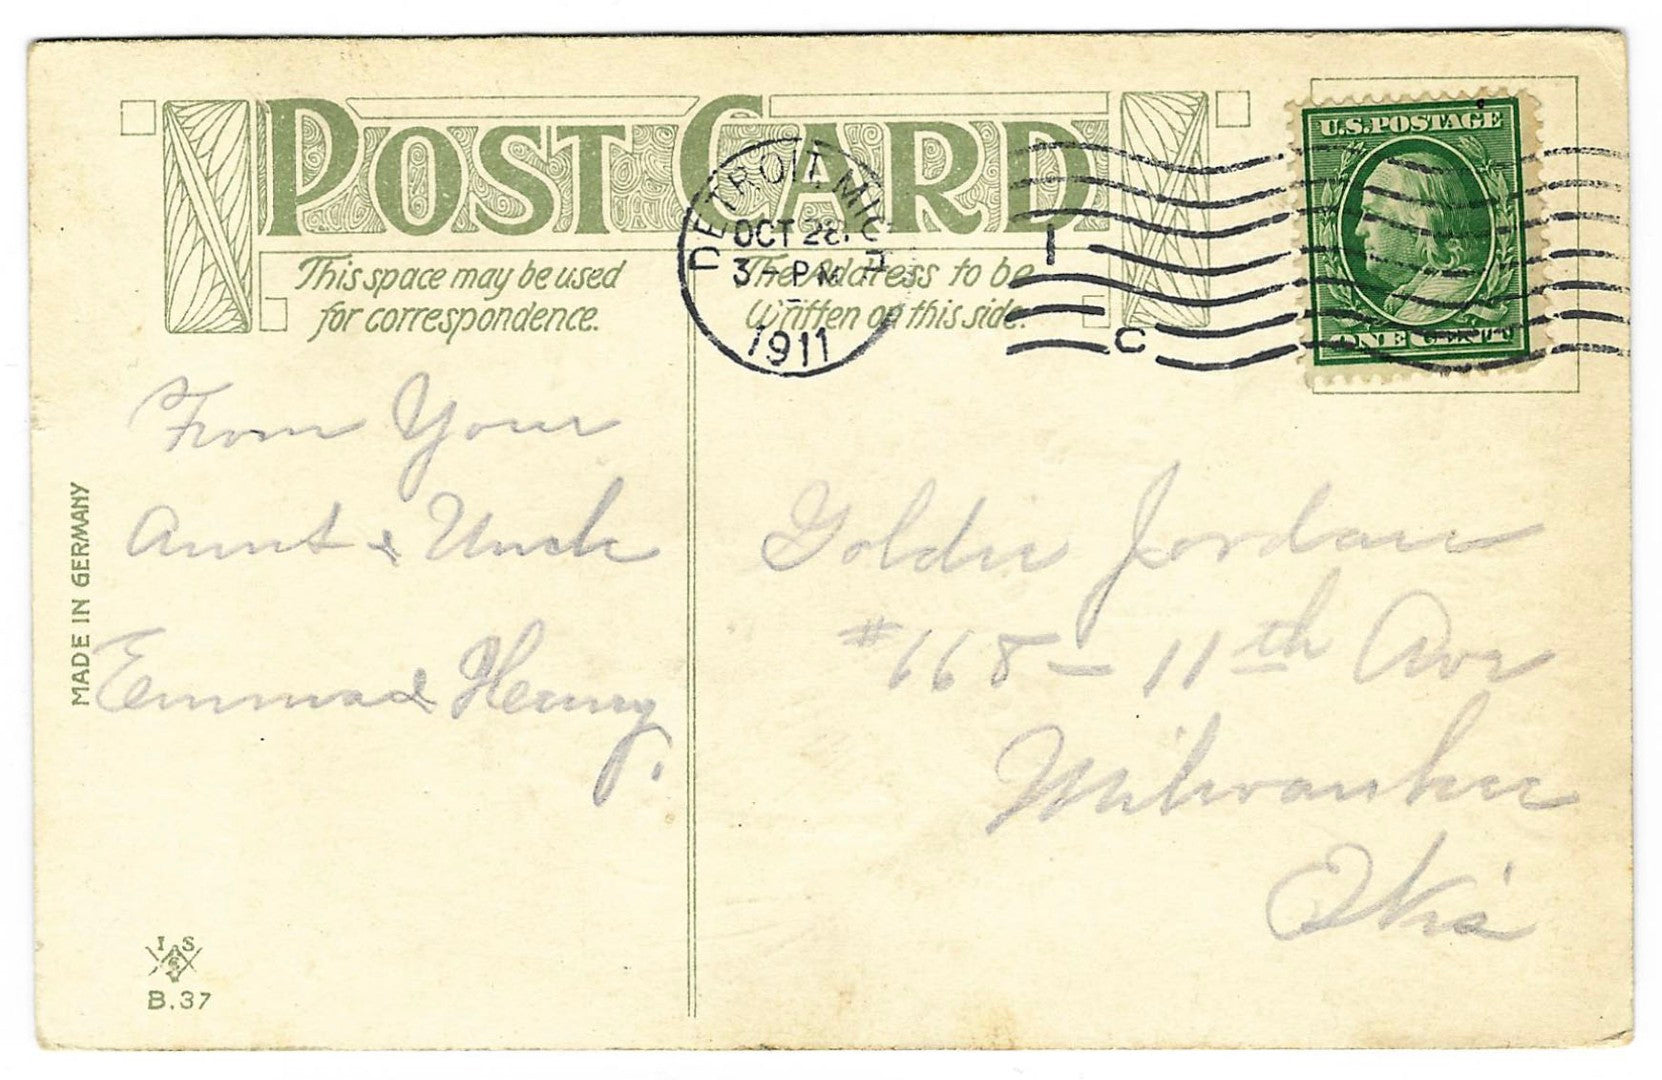 POST CARD
This space may be used
for correspondence.
The Address to be
Written on this side.
DETROIT, MICH
OCT 28
3 - PM
1911
1
C
U.S.POSTAGE
ONE
From Your
Aunt & Uncle
Emma & Henry.
Goldie Jordan
#668 - 11th Ave
Milwaukee
Wis
MADE IN GERMANY
I S
B.37